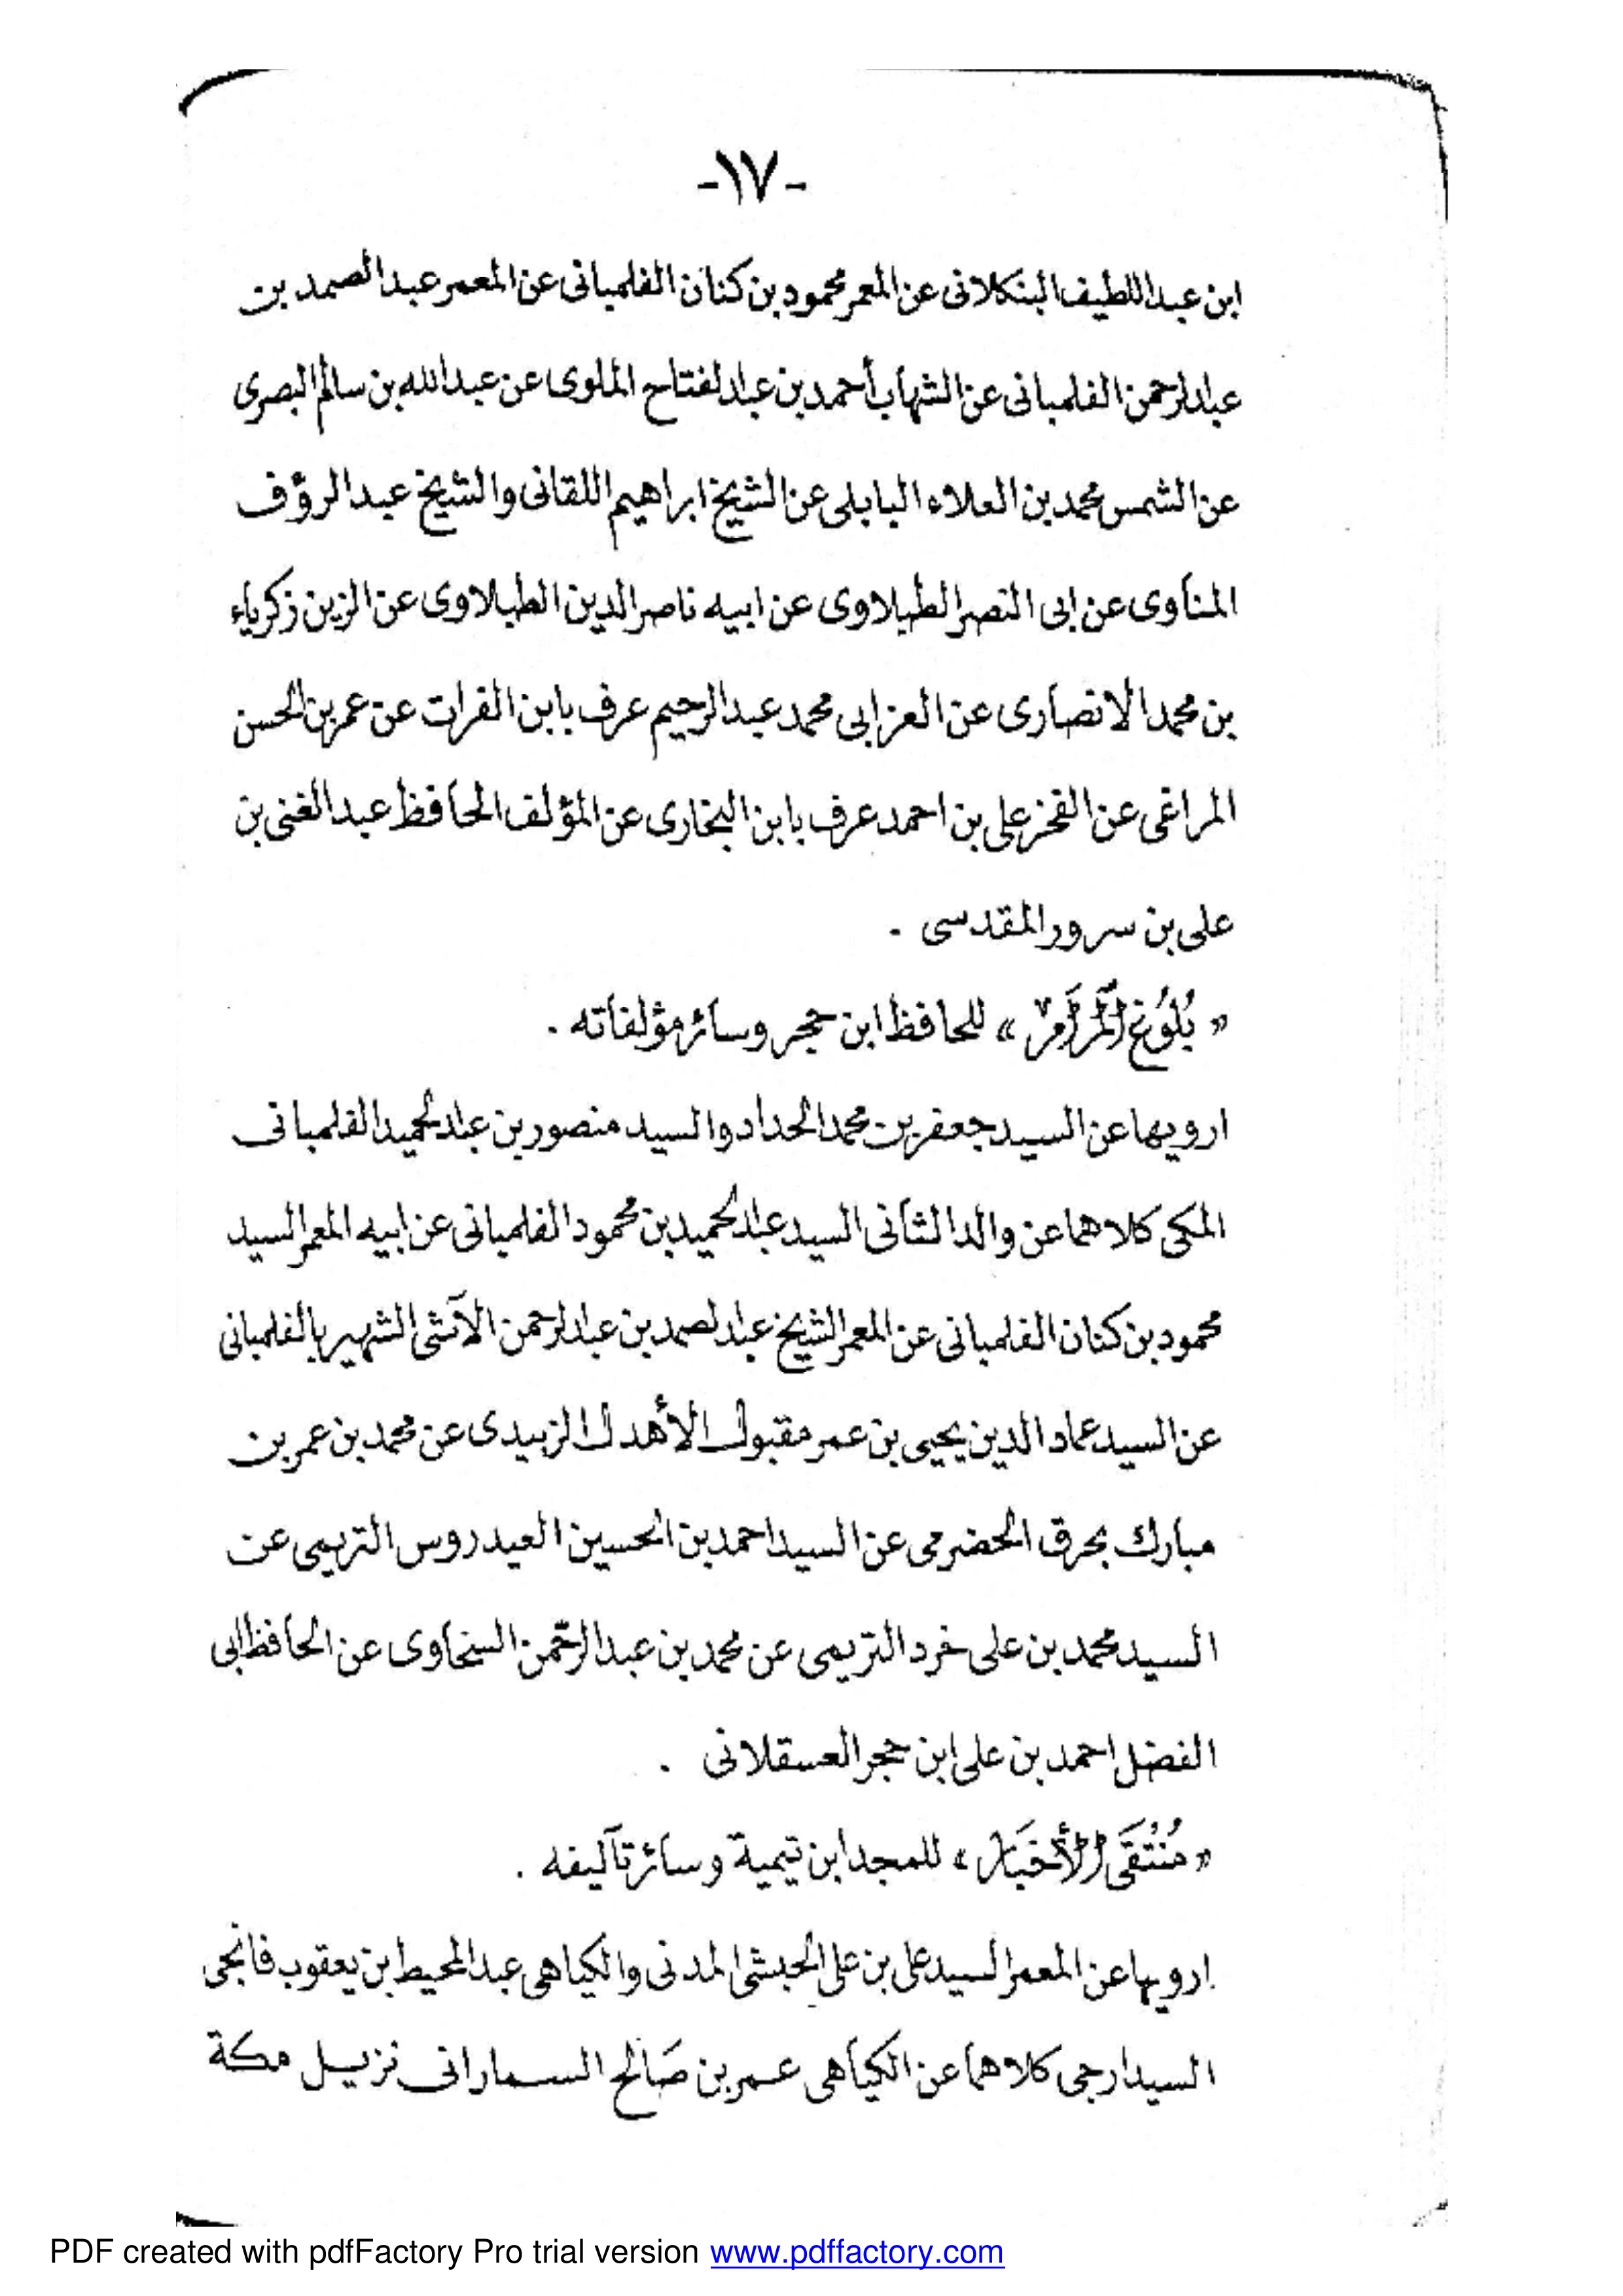 -١٧-
ابن عبد اللطيف البنكلانى عن المعمر محمود بن كنان الفلمبانى عن المعمر عبد الصمد بن
عبد الرحمن الفلمبانى عن الشهاب أحمد بن عبد الفتاح الملوى عن عبد الله بن سالم البصرى
عن الشمس محمد بن العلاء البابلى عن الشيخ ابراهيم اللقانى والشيخ عبد الرؤف
المناوى عن ابى النصر الطبلاوى عن ابيه ناصر الدين الطبلاوى عن الزين زكرياء
بن محمد الانصارى عن العز ابى محمد عبد الرحيم عرف بابن الفرات عن عمر بن الحسن
المراغى عن الفخر على بن احمد عرف بابن البخارى عن المؤلف الحافظ عبد الغنى بن
على بن سرور المقدسى .
« بُلُوغ الْمَرَام » للحافظ ابن حجر وسائر مؤلفاته .
ارويها عن السيد جعفر بن محمد الحداد والسيد منصور بن عبد الحميد الفلمبانى
المكى كلاهما عن والد الثانى السيد عبد الحميد بن محمود الفلمبانى عن ابيه المعمر السيد
محمود بن كنان الفلمبانى عن المعمر الشيخ عبد الصمد بن عبد الرحمن الآشى الشهير بالفلمبانى
عن السيد عماد الدين يحيى بن عمر مقبول الأهدل الزبيدى عن محمد بن عمر بن
مبارك بحرق الحضرمى عن السيد احمد بن الحسين العيدروس التريمى عن
السيد محمد بن على خرد التريمى عن محمد بن عبد الرحمن السخاوى عن الحافظ ابى
الفضل احمد بن على ابن حجر العسقلانى .
« مُنْتَقَى الْأَخْبَار » للمجد ابن تيمية وسائر تآليفه .
ارويها عن المعمر السيد على بن على الحبشى المدنى والكياهى عبد المحيط بن يعقوب فانجى
السيدارجى كلاهما عن الكياهى عمر بن صَالح السمارانى نزيل مكة
PDF created with pdfFactory Pro trial version www.pdffactory.com